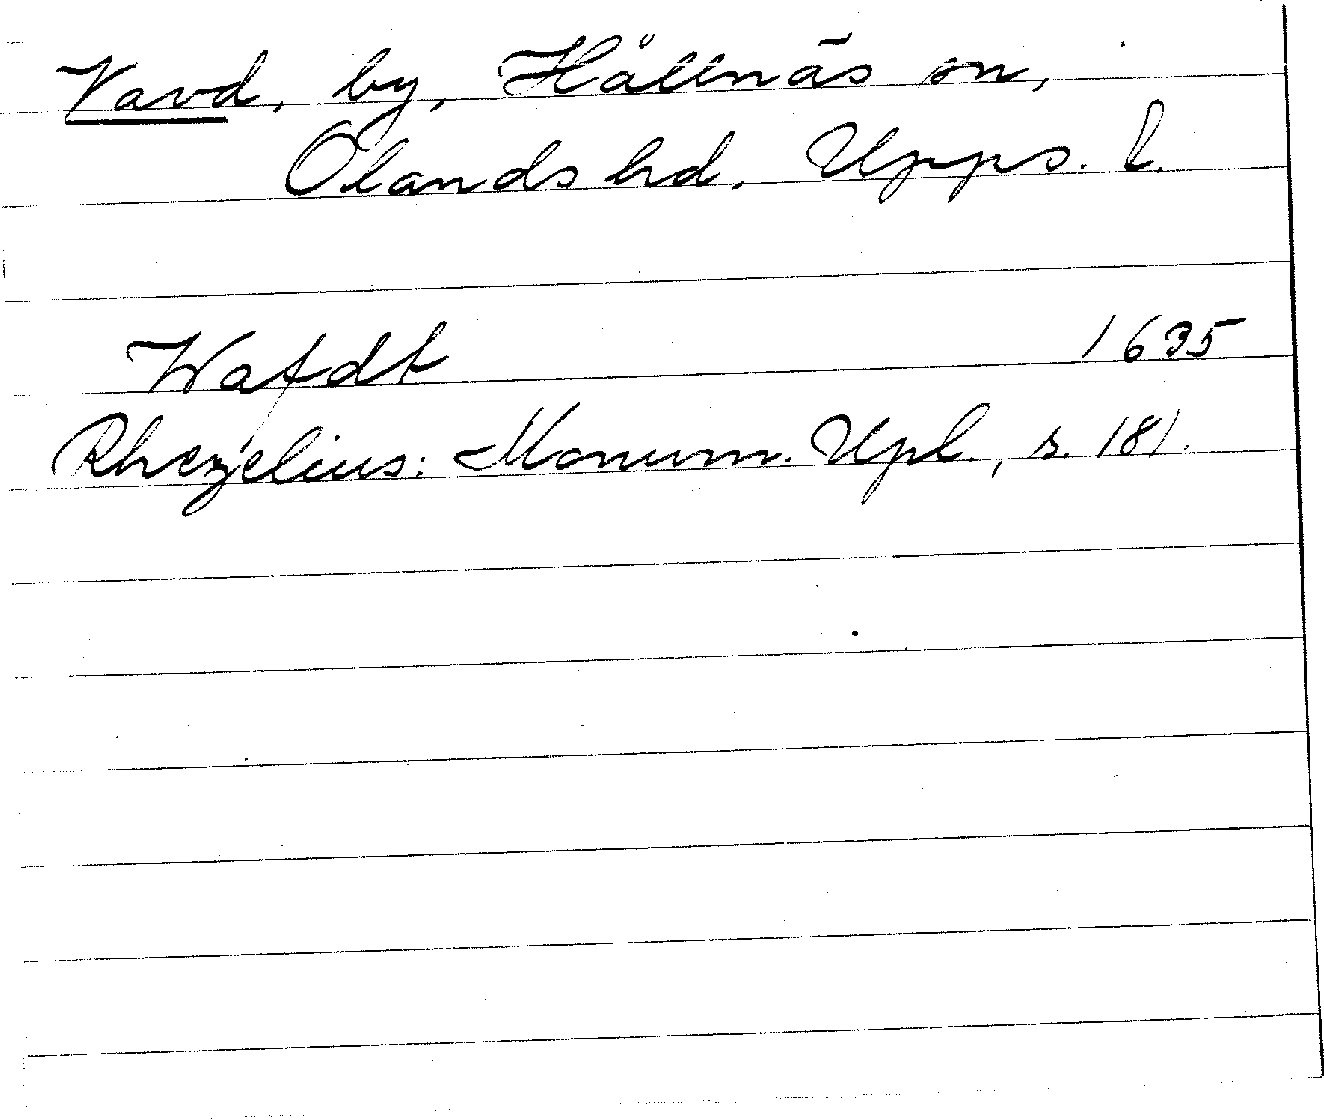 Vavd, by, Hållnäs sn,
Olands hd. Upps. l.
Wafdt 1635
Rhezelius: Monum. Upl., s. 181.